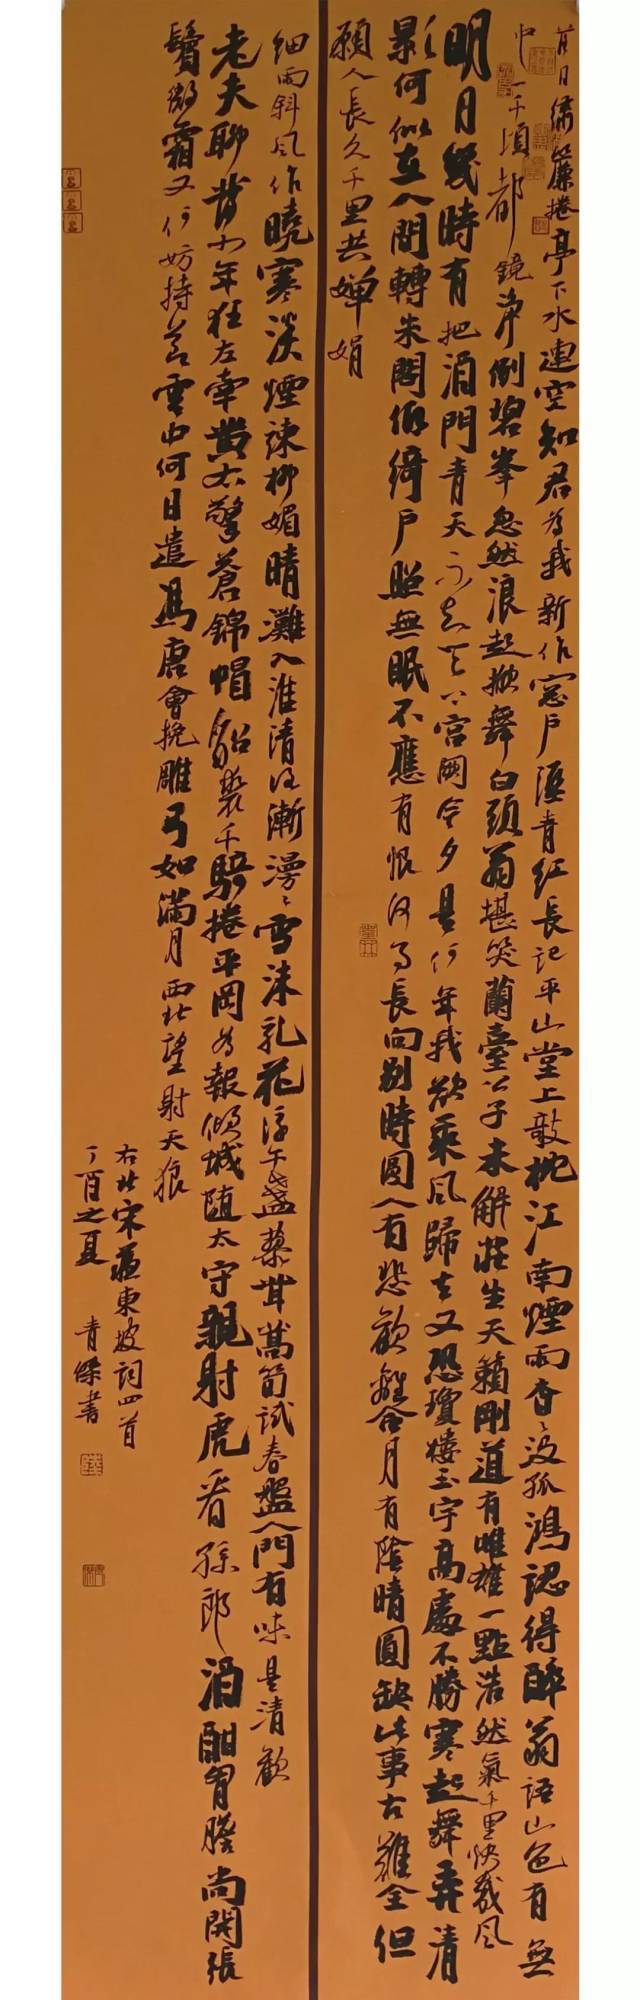 日繡簾捲亭下水連空知君為我新作窓戶濕青紅長記平山堂上敧枕江南煙雨杳〻沒孤鴻認得醉翁語山色有無
中一千頃都鏡淨倒碧峯忽然浪起掀舞白頭翁堪笑蘭臺公子未解莊生天籟剛道有雌雄一點浩然氣千里快哉風
明月幾時有把酒問青天不知天上宮闕今夕是何年我欲乘風歸去又恐瓊樓玉宇高處不勝寒起舞弄清
影何似在人間轉朱閣低綺戶照無眠不應有恨何事長向別時圓人有悲歡離合月有陰晴圓缺此事古難全但
願人長久千里共嬋娟
細雨斜風作曉寒淡煙疎柳媚晴灘入淮清洛漸漫〻雪沫乳花浮午盞蓼茸蒿筍試春盤人間有味是清歡
老夫聊發少年狂左牽黃右擎蒼錦帽貂裘千騎捲平岡為報傾城随太守親射虎看孫郎酒酣胷膽尚開張
鬢微霜又何妨持節雲中何日遣馮唐會挽雕弓如滿月西北望射天狼
右北宋蘇東坡詞四首
丁酉之夏 青傑書